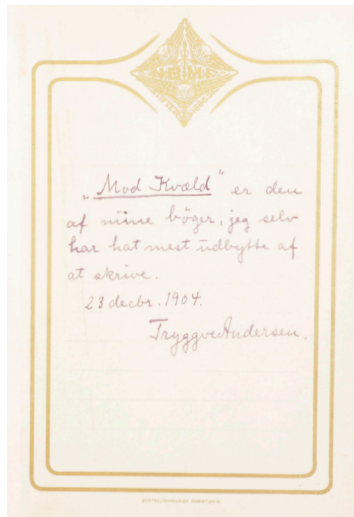 N.B.M.F.
„Mod Kvæld" er den
af mine böger, jeg selv
har hat mest udbytte af
at skrive.
23 decbr. 1904.
Tryggve Andersen.